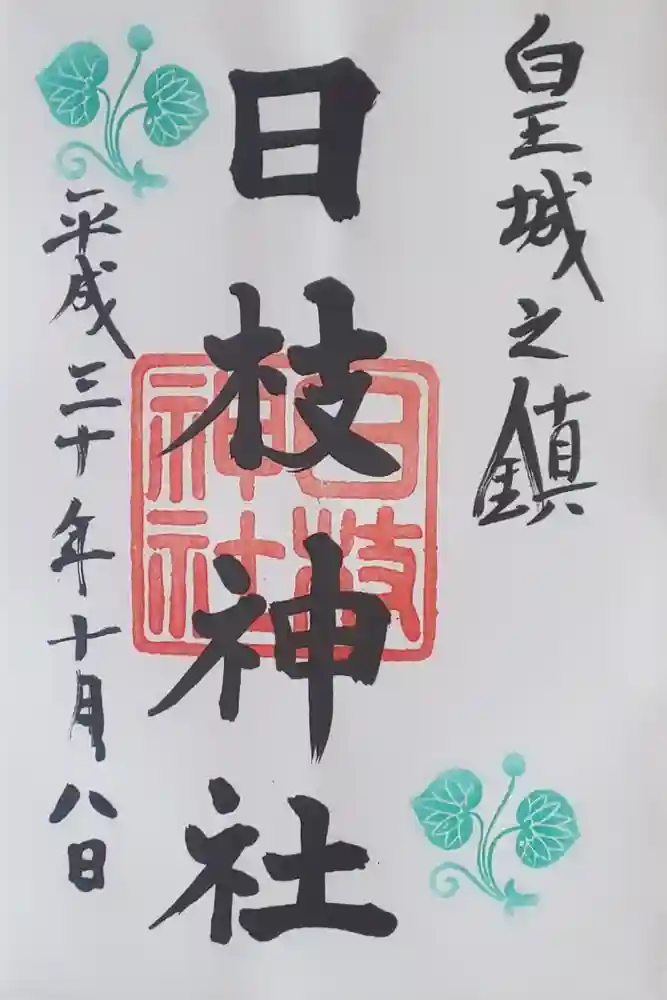 皇城之鎮
日枝神社
日枝
神社
平成三十年十月八日